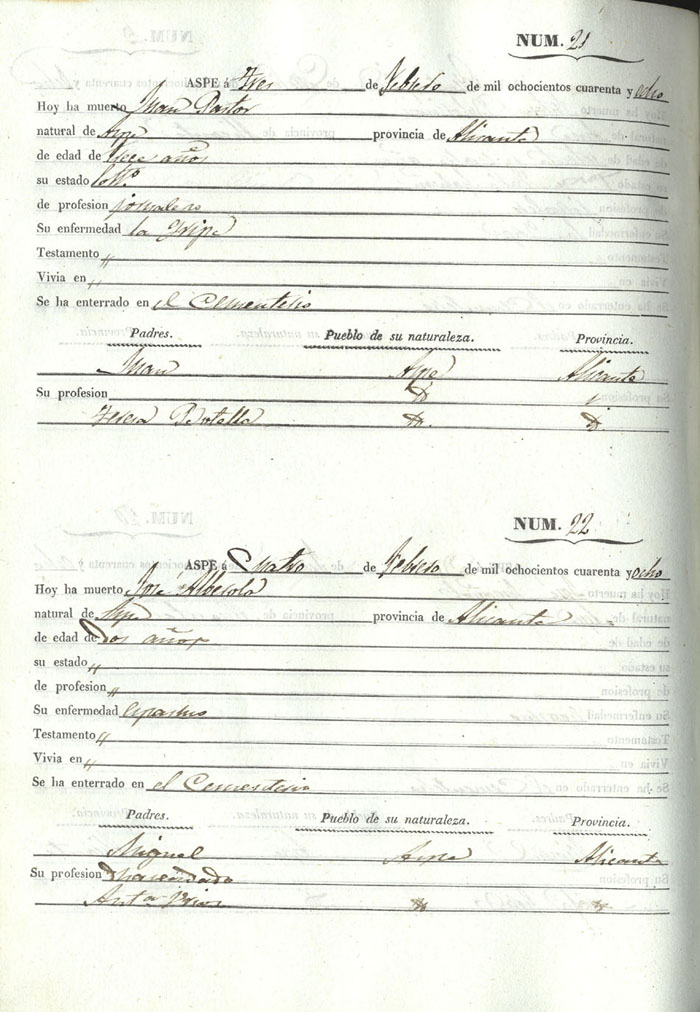 NUM. 21
ASPE á Tres de Febrero de mil ochocientos cuarenta y ocho
Hoy ha muerto Juan Pastor
natural de Aspe provincia de Alicante
de edad de trece años
su estado
de profesion jornalero
Su enfermedad la Gripe
Testamento "
Vivia en "
Se ha enterrado en el Cementerio
Padres. Pueblo de su naturaleza. Provincia.
Juan Aspe Alicante
Su profesion
Teresa Botella
NUM. 22
ASPE á Cuatro de Febrero de mil ochocientos cuarenta y ocho
Hoy ha muerto José Alberola
natural de Aspe provincia de Alicante
de edad de Dos años
su estado "
de profesion "
Su enfermedad
Testamento "
Vivia en "
Se ha enterrado en el Cementerio
Padres. Pueblo de su naturaleza. Provincia.
Miguel Aspe Alicante
Su profesion hacendado
Ant.a